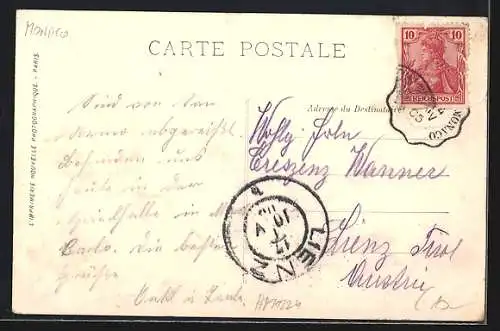 MONACO
CARTE POSTALE
L'IMPRIMERIE NOUVELLE PHOTOGRAPHIQUE - PARIS
10 10
REICHSPOST
MONACO
Adresse du Destinataire
Sind von San
Remo abgereist
befinden uns
heute in der
Spielhalle in M.
Carlo. Die besten
Grüsse
Onkel u Tante
Crescenz Wanner
LIENZ
Lienz Tirol
Austria